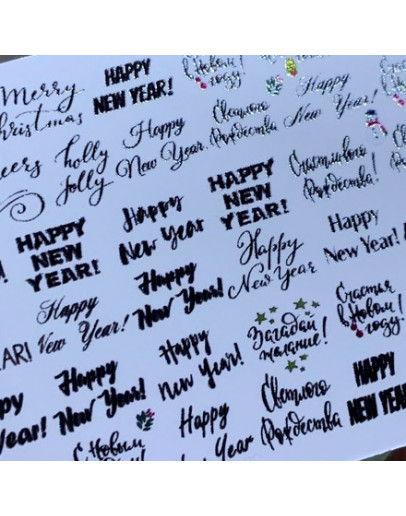 Merry
Christmas
HAPPY
NEW YEAR!
С Новым
годом!
Happy
New Year!
Cheers
holly
jolly
Happy
New Year
Светлого
Рождества
Счастливого
Рождества!
HAPPY
NEW
YEAR!
Happy
New Year
HAPPY
NEW
YEAR!
Happy
New Year!
Happy
New Year!
Happy
New Year!
Happy
New Year
Загадай
желание!
Счастья
в Новом
году!
Happy
New Year!
Happy
New Year!
Happy
New Year
Светлого
Рождества
HAPPY
NEW YEAR!
С Новым